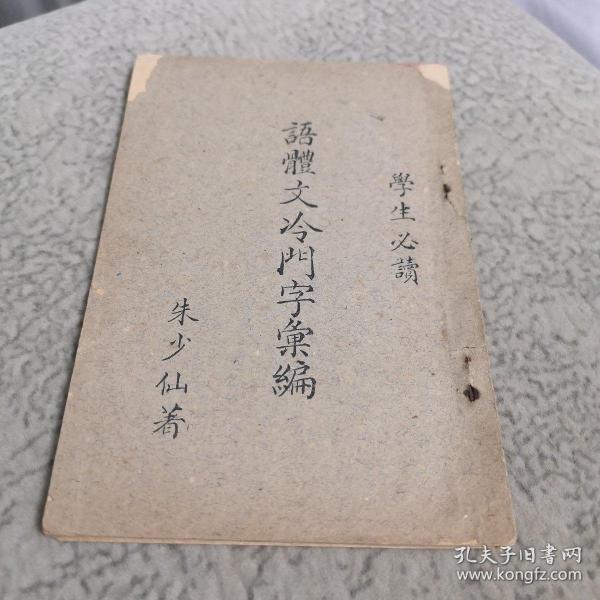 學生必讀
語體文冷門字彙編
朱少仙著
孔夫子旧书网
www.kongfz.com